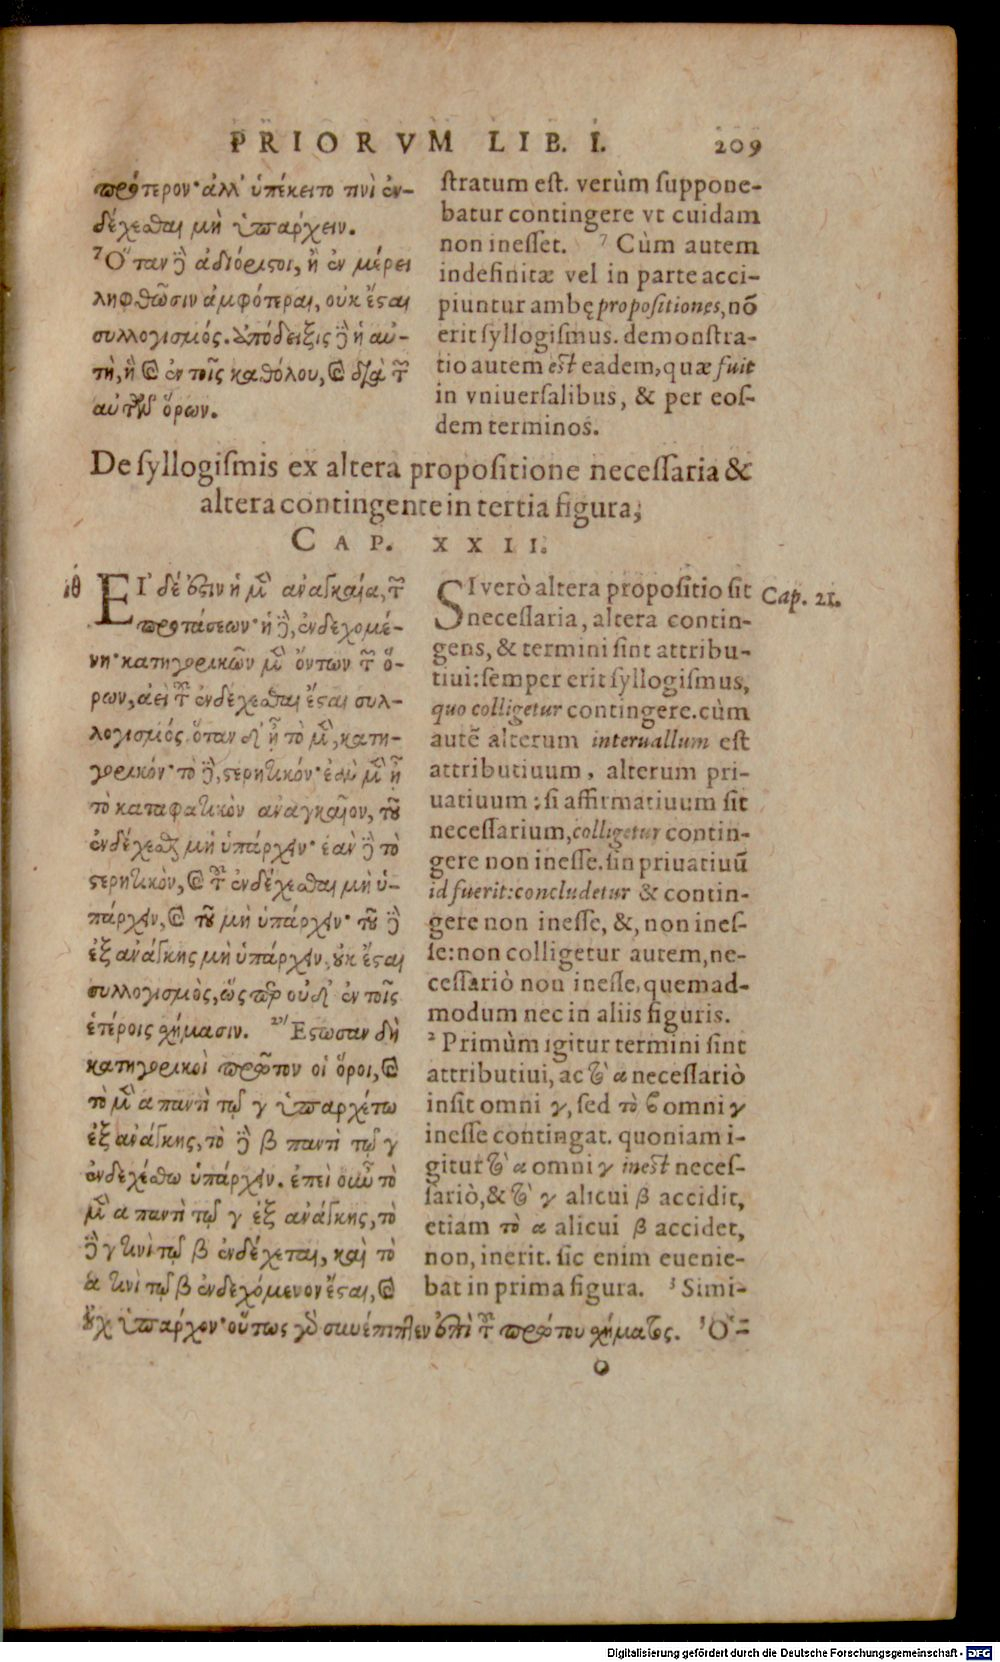 PRIORVM LIB. I. 209
πρότερον· ἀλλ' ὑπέκειτο τινὶ ἐν-
δέχεσθαι μὴ ὑπάρχειν.
⁷Ὅταν δὲ ἀδιόριστοι, ἢ ἐν μέρει
ληφθῶσιν ἀμφότεραι, οὐκ ἔσται
συλλογισμός. ἀπόδειξις δὲ ἡ αὐ-
τὴ, ἣ καὶ ἐν τοῖς καθόλου, καὶ διὰ τῶν
αὐτῶν ὅρων.
stratum est. verùm suppone-
batur contingere vt cuidam
non inesset. ⁷ Cùm autem
indefinitæ vel in parte acci-
piuntur ambę propositiones, nō
erit syllogismus. demonstra-
tio autem est eadem, quæ fuit
in vniuersalibus, & per eos-
dem terminos.
De syllogismis ex altera propositione necessaria &
altera contingente in tertia figura,
CAP. XXII.
ιθ ΕΙ' δέ ἐστιν ἡ μὲν ἀναγκαία, τῶν
προτάσεων· ἡ δὲ, ἐνδεχομέ-
νη· κατηγορικῶν μὲν ὄντων τῶν ὅ-
ρων, ἀεὶ τοῦ ἐνδέχεσθαι ἔσται συλ-
λογισμός. ὅταν δ' ᾖ τὸ μὲν, κατη-
γορικόν· τὸ δὲ, στερητικόν· ἐὰν μὲν ᾖ
τὸ καταφατικὸν ἀναγκαῖον, τοῦ
ἐνδέχεσθαι μὴ ὑπάρχειν· ἐὰν δὲ τὸ
στερητικὸν, καὶ τοῦ ἐνδέχεσθαι μὴ ὑ-
πάρχειν, καὶ τοῦ μὴ ὑπάρχειν· τοῦ δὲ
ἐξ ἀνάγκης μὴ ὑπάρχειν, οὐκ ἔσται
συλλογισμὸς, ὥσπερ οὐδ' ἐν τοῖς
ἑτέροις σχήμασιν. ² Ἔστωσαν δὴ
κατηγορικοὶ πρῶτον οἱ ὅροι, καὶ
τὸ μὲν α παντὶ τῷ γ ὑπαρχέτω
ἐξ ἀνάγκης, τὸ δὲ β παντὶ τῷ γ
ἐνδεχέσθω ὑπάρχειν. ἐπεὶ οὖν τὸ
μὲν α παντὶ τῷ γ ἐξ ἀνάγκης, τὸ
δὲ γ τινὶ τῷ β ἐνδέχεται, καὶ τὸ
α τινὶ τῷ β ἐνδεχόμενον ἔσται, καὶ
οὐχ ὑπάρχον· οὕτως γὰρ συνέπιπτεν ἐπὶ τοῦ πρώτου σχήματος. ³ Ὁ-
SI verò altera propositio sit Cap. 21.
necessaria, altera contin-
gens, & termini sint attribu-
tiui: semper erit syllogismus,
quo colligetur contingere. cùm
autē alterum interuallum est
attributiuum, alterum pri-
uatiuum: si affirmatiuum sit
necessarium, colligetur contin-
gere non inesse. sin priuatiuū
id fuerit: concludetur & contin-
gere non inesse, &, non ines-
se: non colligetur autem, ne-
cessariò non inesse, quemad-
modum nec in aliis figuris.
² Primùm igitur termini sint
attributiui, ac τὸ α necessariò
insit omni γ, sed τὸ β omni γ
inesse contingat. quoniam i-
gitur τὸ α omni γ inest neces-
sariò, & τὸ γ alicui β accidit,
etiam τὸ α alicui β accidet,
non, inerit. sic enim euenie-
bat in prima figura. ³ Simi-
O
Digitalisierung gefördert durch die Deutsche Forschungsgemeinschaft - DFG